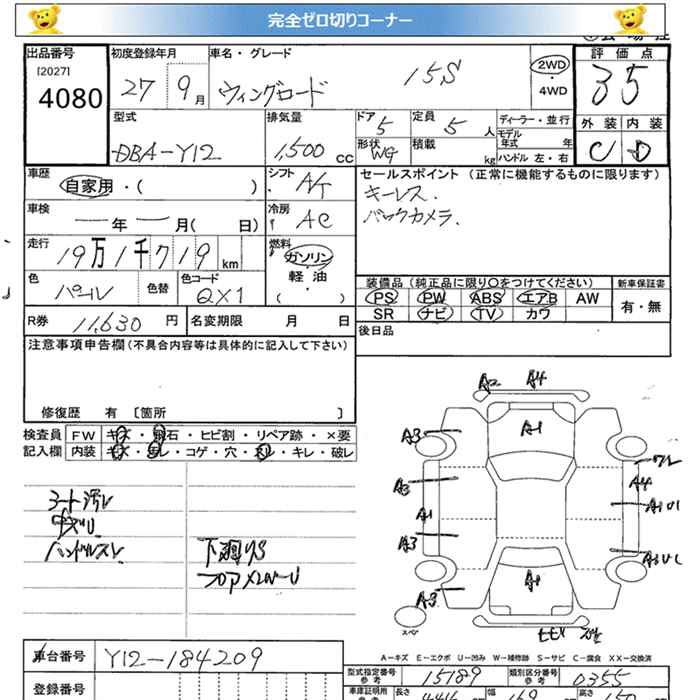 完全ゼロ切りコーナー
出品番号 初度登録年月 車名・グレード 評価点
[2027]
4080
27 9月 ウィングロード 15S 2WD・4WD 35
型式 排気量 ドア 定員 ディーラー・並行 外装 内装
DBA-Y12 1,500cc 5 5人 モデル年式 年 C D
形状 WG 積載 kg ハンドル 左・右
車歴 自家用・( ) シフト A/T セールスポイント (正常に機能するものに限ります)
キーレス.
バックカメラ.
車検 ー年ー月( 日) 冷房 AC
走行 19万1千719km 燃料 ガソリン・軽・油・( )
色 パール 色替 色コード QX1
装備品(純正品に限り○をつけてください) 新車保証書
PS PW ABS エアB AW 有・無
SR ナビ TV カワ
R券 11,630円 名変期限 月 日 後日品
注意事項申告欄(不具合内容等は具体的に記入して下さい)
修復歴 有 [箇所 ]
検査員 FW キズ・飛石・ヒビ割・リペア跡・×要
記入欄 内装 キズ・汚レ・コゲ・穴・スレ・キレ・破レ
シート汚レ
ハンドルスレ
下廻りS
A2 A4
A3 A1
A3 A4
A1
A3
A3 A1
スペア
A-キズ E-エクボ U-凹み W-補修跡 S-サビ C-腐食 XX-交換済
車台番号 Y12-184209
型式指定番号 参考 15189 類別区分番号 参考 0355
登録番号
車庫証明用 長さ 幅 高さ